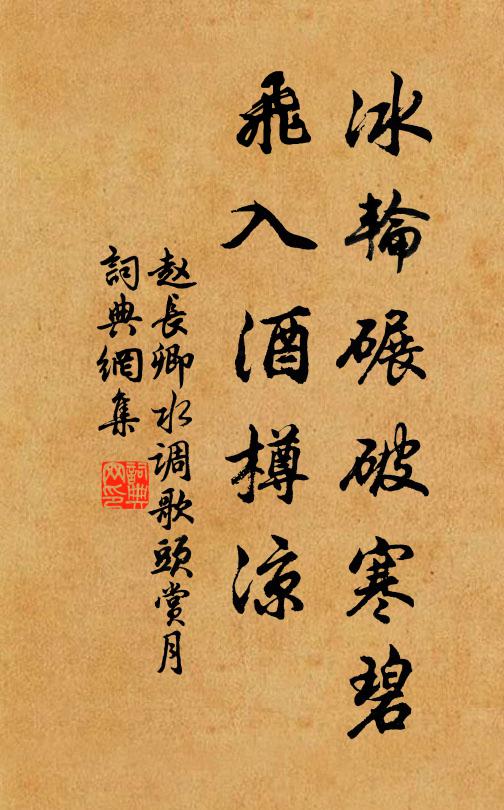 冰輪碾破寒碧
飛入酒樽涼
赵長卿水调歌頭賞月
詞典網集
詞典网印